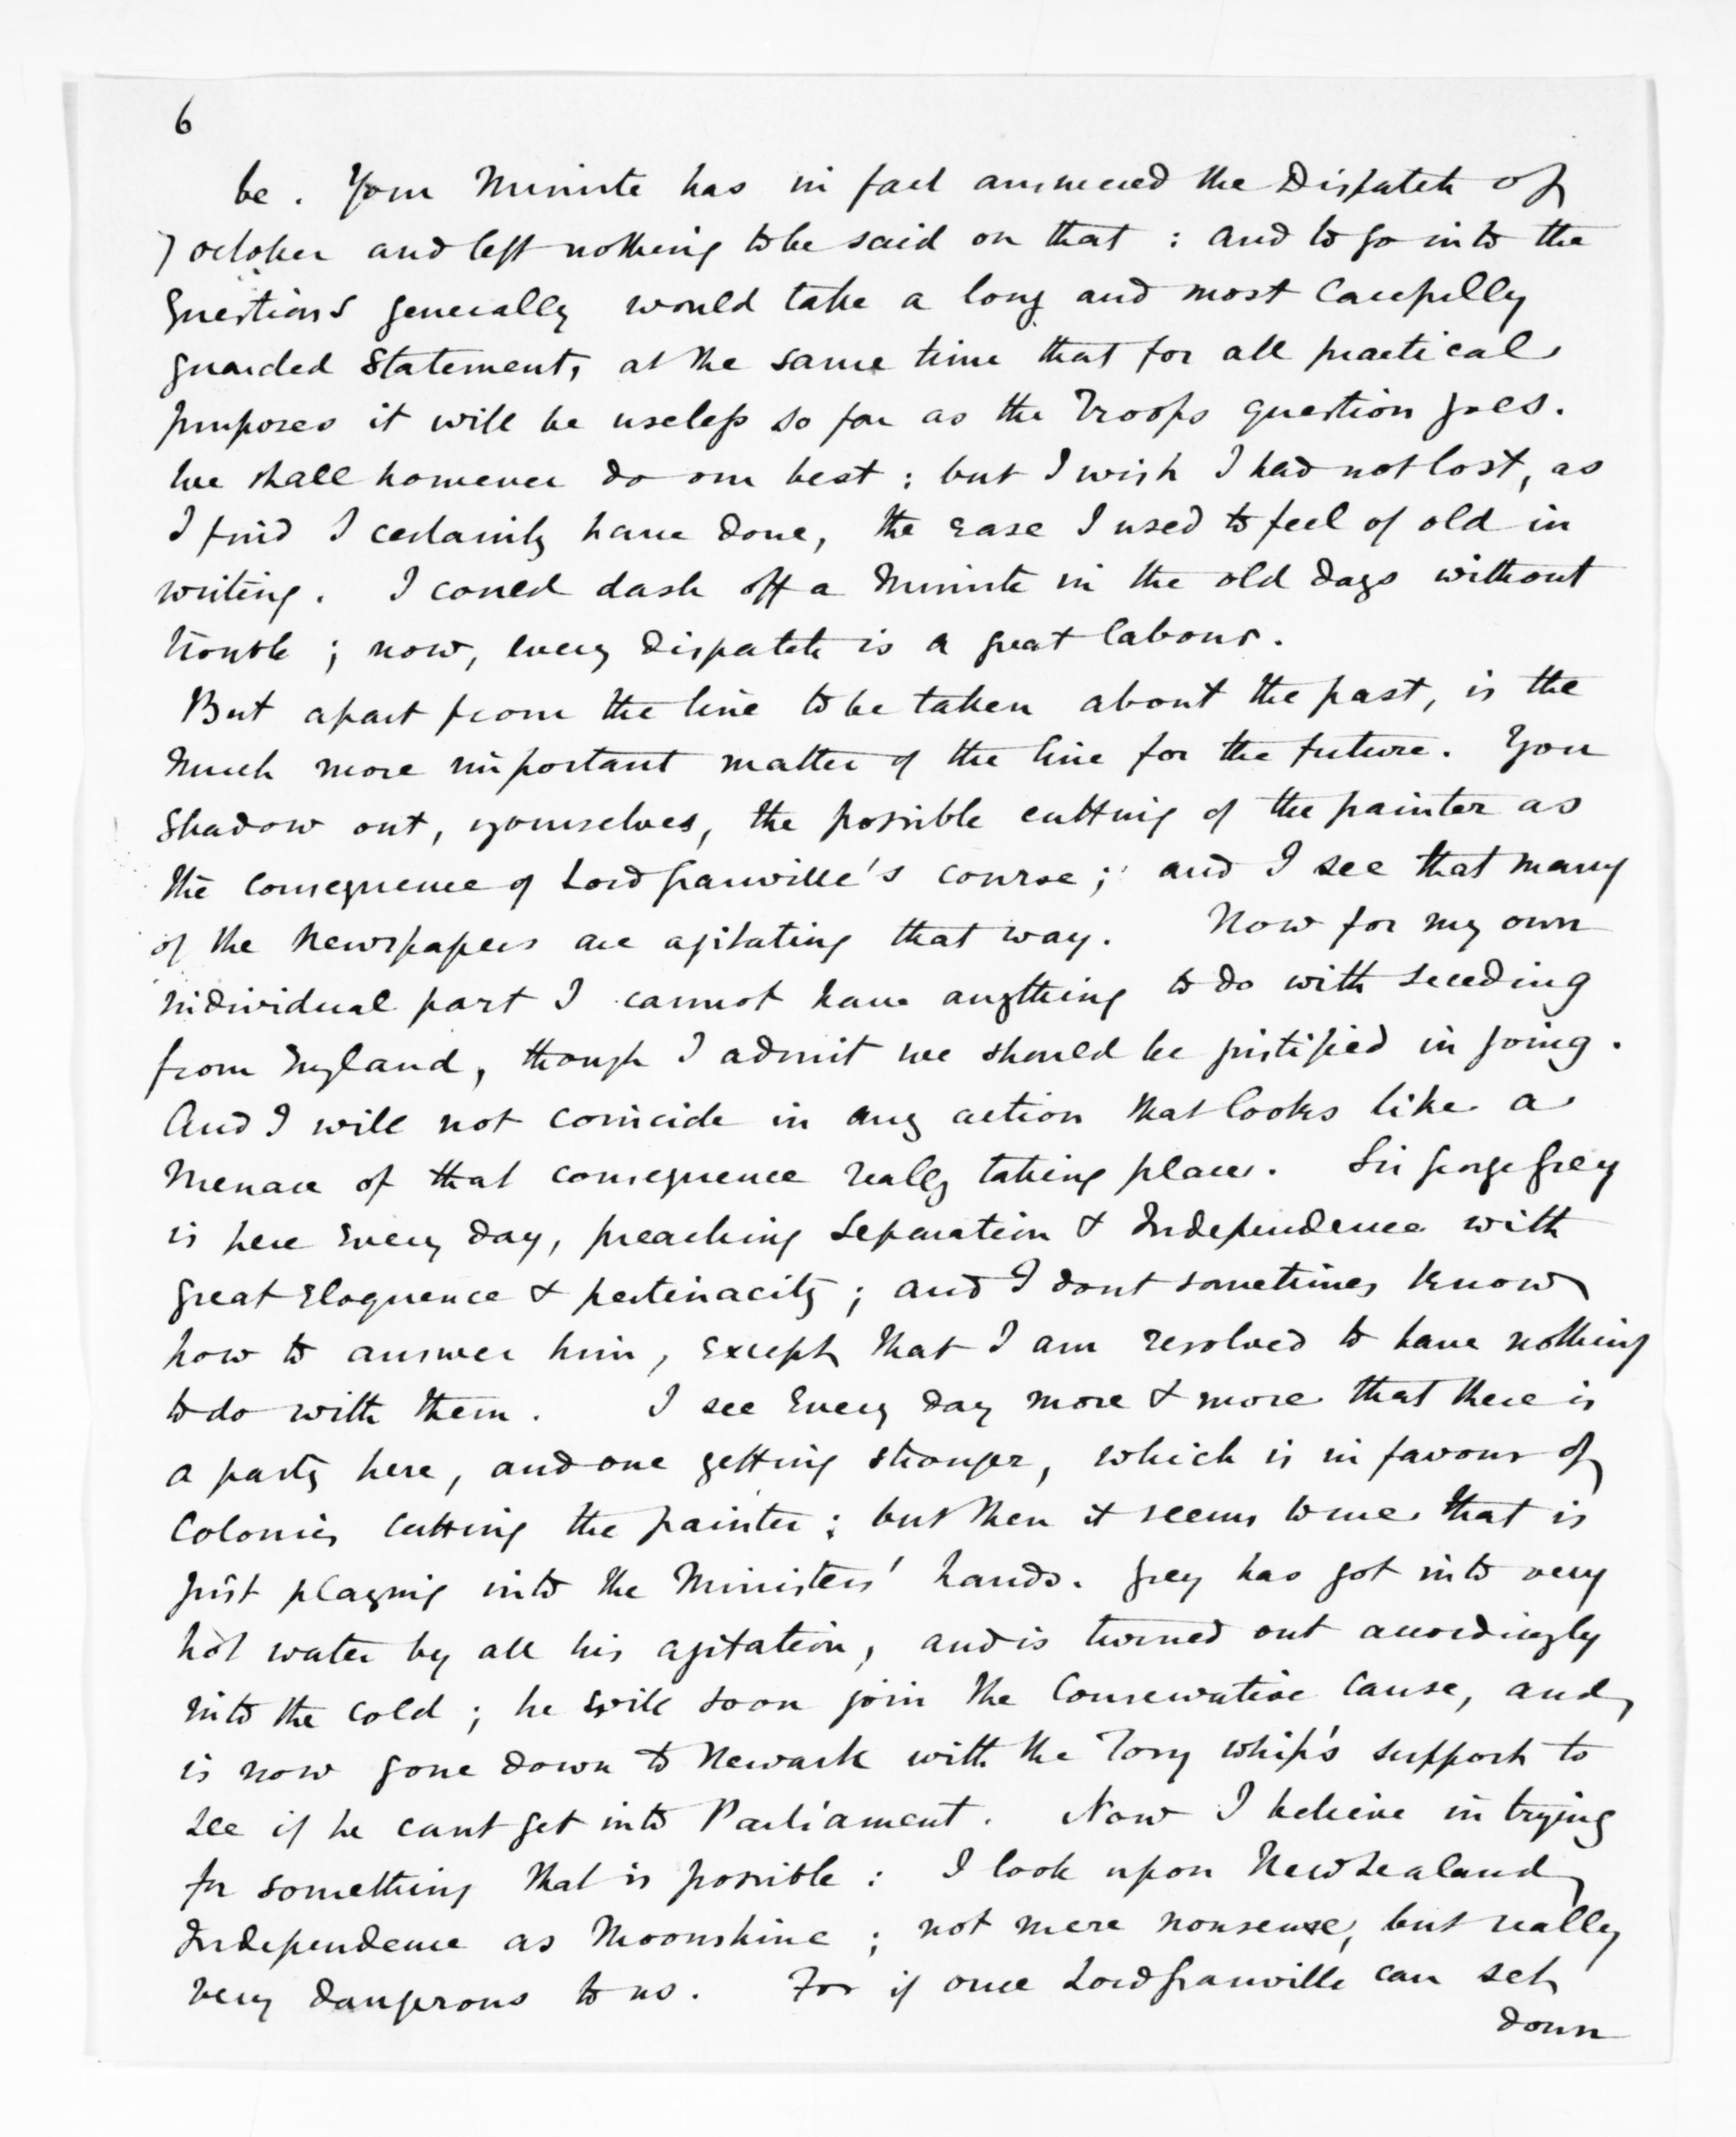 6
be. Your Minute has in fact answered the Dispatch of
7 October and left nothing to be said on that : and to go into the
Questions generally would take a long and most carefully
guarded Statement, at the same time that for all practical
purposes it will be useless so far as the Troops question goes.
We shall however do our best ; but I wish I had not lost, as
I find I certainly have done, the ease I used to feel of old in
writing. I could dash off a Minute in the old days without
trouble ; now, every Dispatch is a great labour.
But apart from the line to be taken about the past, is the
much more important matter of the line for the future. You
shadow out, yourselves, the possible cutting of the painter as
the consequence of Lord Granville's course ; and I see that many
of the Newspapers are agitating that way. Now for my own
individual part I cannot have anything to do with seceding
from England, though I admit we should be justified in going.
And I will not coincide in any action that looks like a
menace of that consequence really taking place. Sir George Grey
is here every day, preaching Separation & Independence with
great eloquence & pertinacity ; and I dont sometimes know
how to answer him, except that I am resolved to have nothing
to do with them. I see every day more & more that there is
a party here, and one getting stronger, which is in favour of
Colonies cutting the painter ; but then it seems to me that is
just playing into the Ministers' hands. Grey has got into very
hot water by all his agitation, and is turned out accordingly
into the cold ; he will soon join the Conservative cause, and
is now gone down to Newark with the Tory whip's support to
see if he cant get into Parliament. Now I believe in trying
for something that is possible : I look upon New Zealand
Independence as Moonshine ; not mere nonsense, but really
very dangerous to us. For if once Lord Granville can set
down